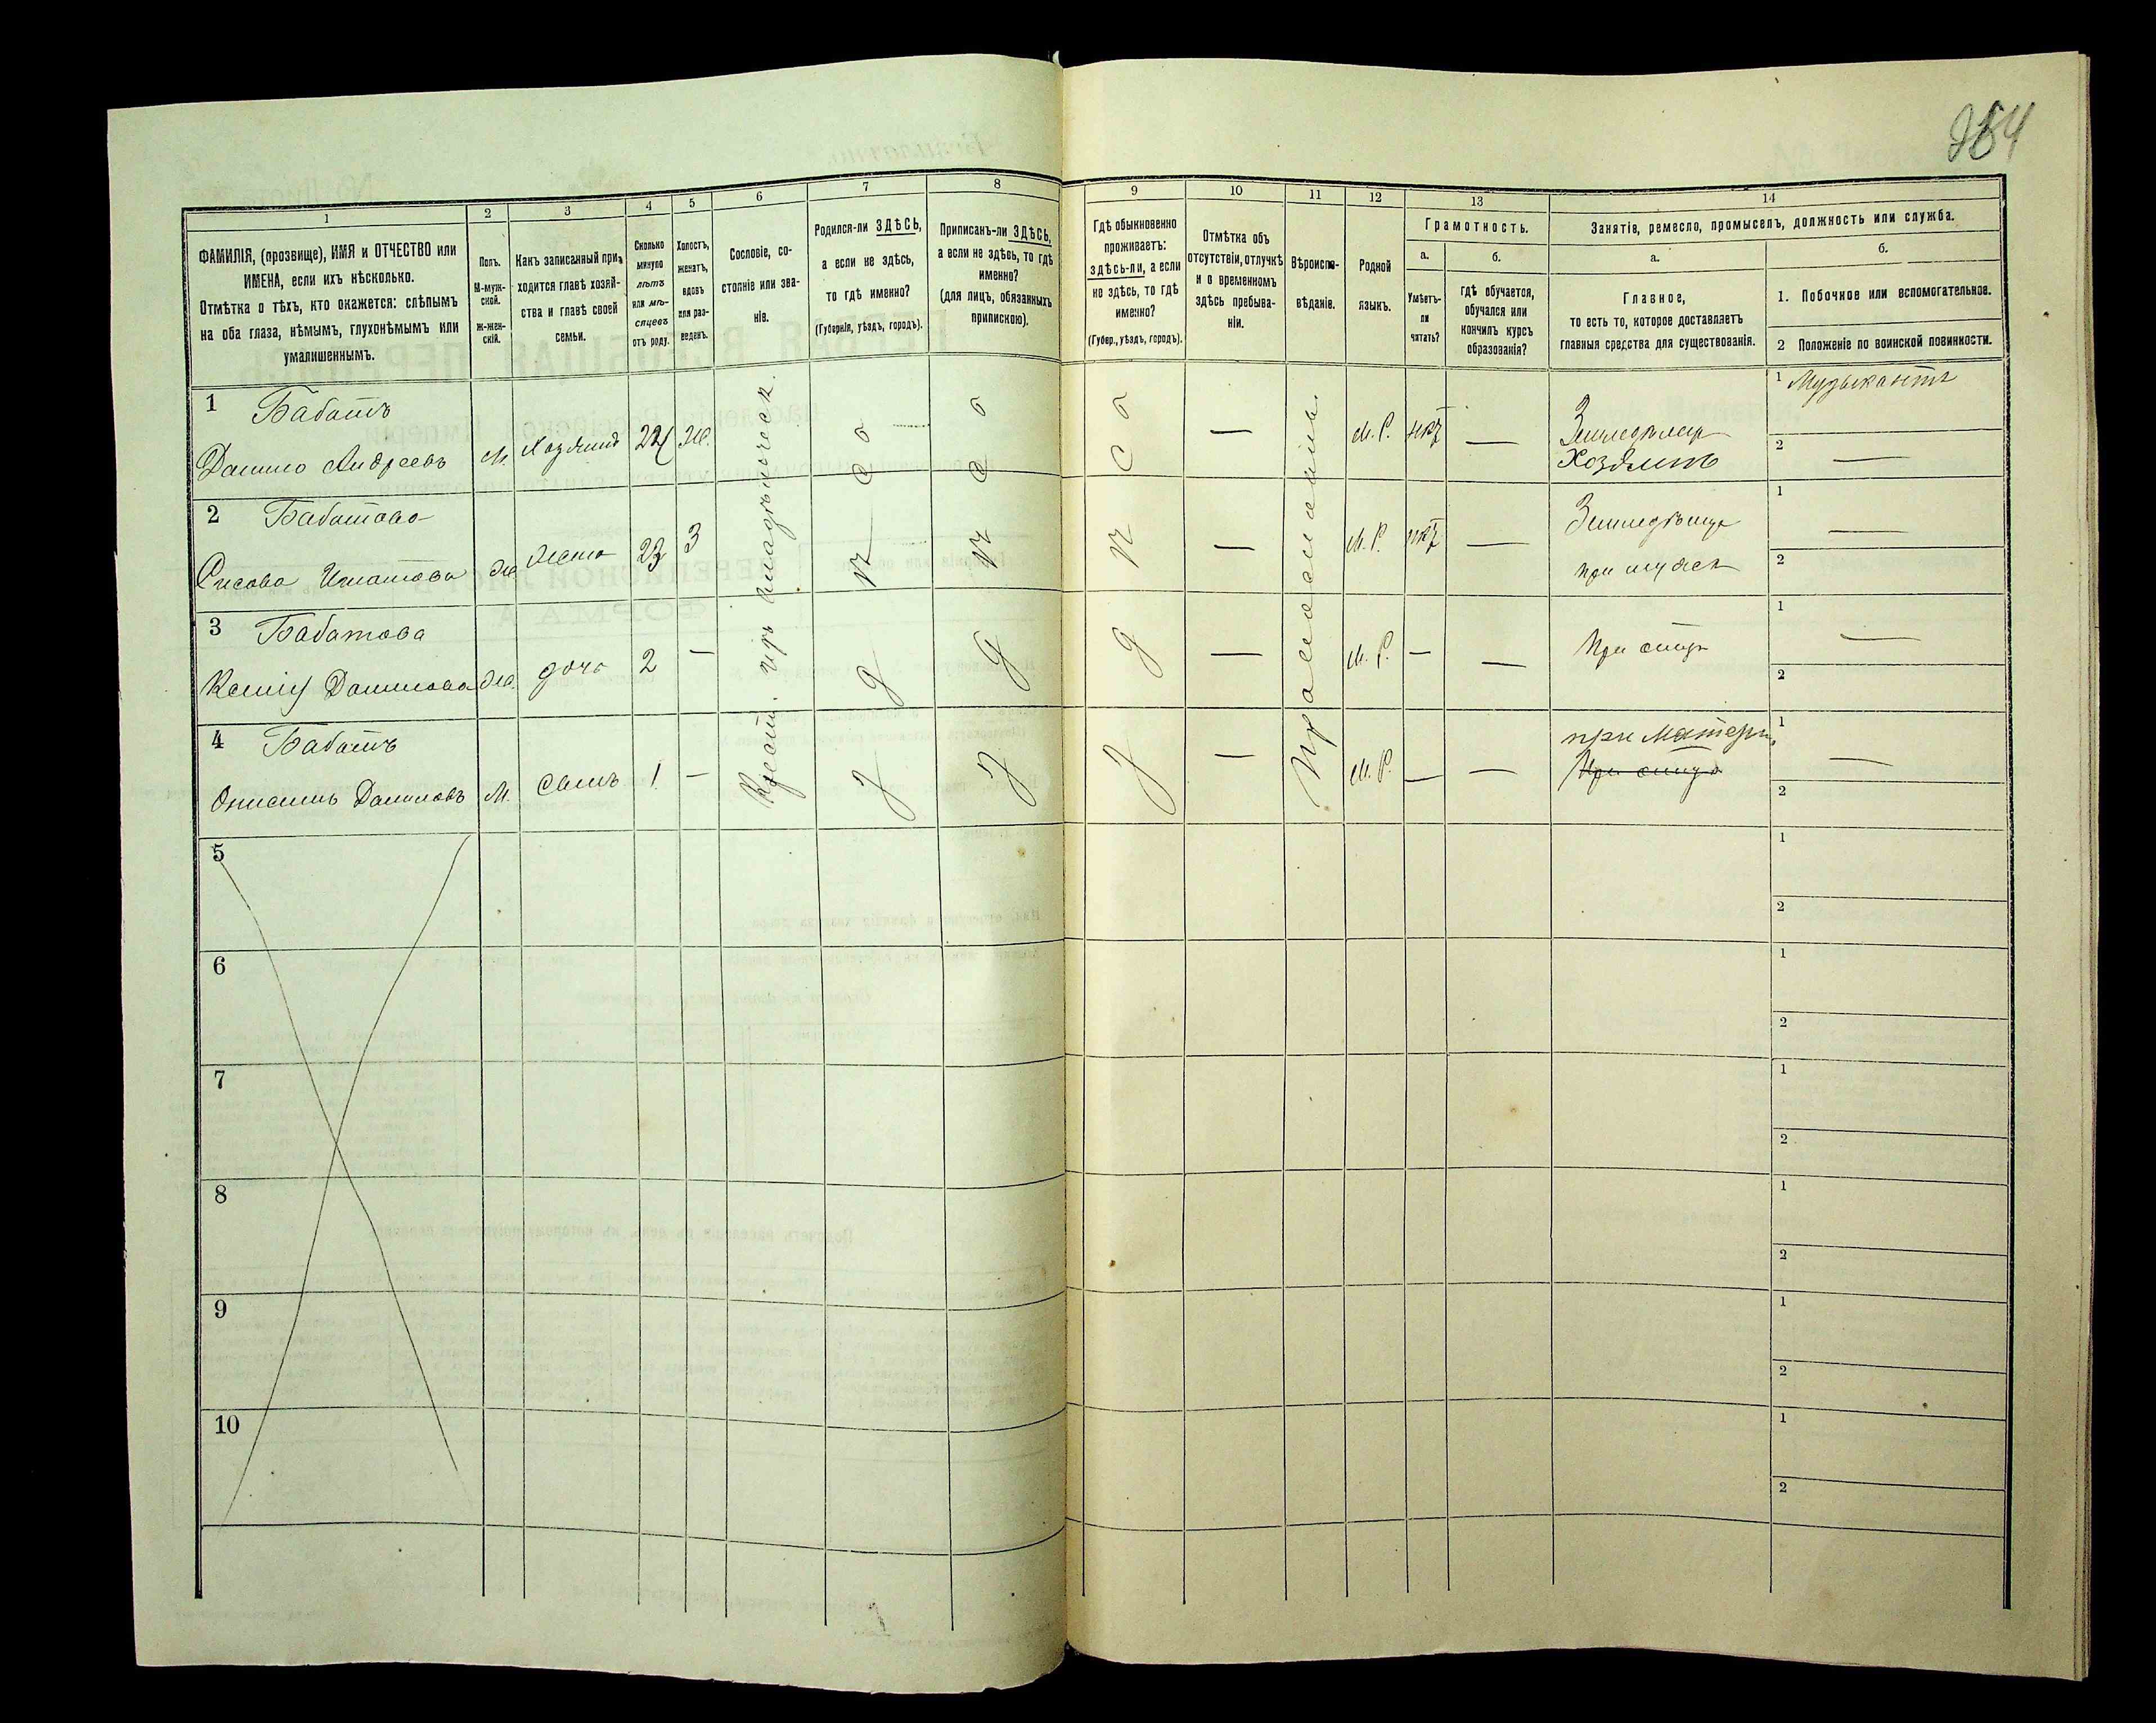 264
1 2 3 4 5 6 7 8 9 10 11 12 13 14
ФАМИЛІЯ, (прозвище), ИМЯ и ОТЧЕСТВО или
ИМЕНА, если ихъ нѣсколько.
Отмѣтка о тѣхъ, кто окажется: слѣпымъ
на оба глаза, нѣмымъ, глухонѣмымъ или
умалишеннымъ.
Полъ.
М-муж-
ской.
Ж-жен-
скій.
Какъ записанный при-
ходится главѣ хозяй-
ства и главѣ своей
семьи.
Сколько
минуло
лѣтъ
или мѣ-
сяцевъ
отъ роду.
Холостъ,
женатъ,
вдовъ
или раз-
веденъ.
Сословіе, со-
стояніе или зва-
ніе.
Родился-ли ЗДѢСЬ,
а если не здѣсь,
то гдѣ именно?
(Губернія, уѣздъ, городъ).
Приписанъ-ли ЗДѢСЬ,
а если не здѣсь, то гдѣ
именно?
(для лицъ, обязанныхъ
припискою).
Гдѣ обыкновенно
проживаетъ:
здѣсь-ли, а если
не здѣсь, то гдѣ
именно?
(Губер., уѣздъ, городъ).
Отмѣтка объ
отсутствіи, отлучкѣ
и о временномъ
здѣсь пребыва-
ніи.
Вѣроиспо-
вѣданіе.
Родной
языкъ.
Грамотность.
а.
Умѣетъ-
ли
читать?
б.
гдѣ обучается,
обучался или
кончилъ курсъ
образованія?
Занятіе, ремесло, промыселъ, должность или служба.
а.
Главное,
то есть то, которое доставляетъ
главныя средства для существованія.
б.
1. Побочное или вспомогательное.
2 Положеніе по воинской повинности.
1 Бабатъ
Данило Андреевъ м. Хозяинъ 22 Ж. М. Р. нѣтъ —
Земледѣлец
Хозяинъ
1 Музыкантъ
2 —
2 Бабатова
Игнатова ж жена 23 З — М. Р. нѣтъ —
Земледѣлица
при мужѣ
1 —
2
3 Бабатова
Данилова ж. дочь 2 — — М. Р. — —
При отцѣ
1 —
2
4 Бабатъ
Онисимъ Даниловъ М. Сынъ 1 — — М. Р. — —
при Матери
При отцѣ
1 —
2
Крест. изъ владѣльческ.
Здѣсь
Здѣсь
Здѣсь
Православный
5 1
2
6 1
2
7 1
2
8 1
2
9 1
2
10 1
2